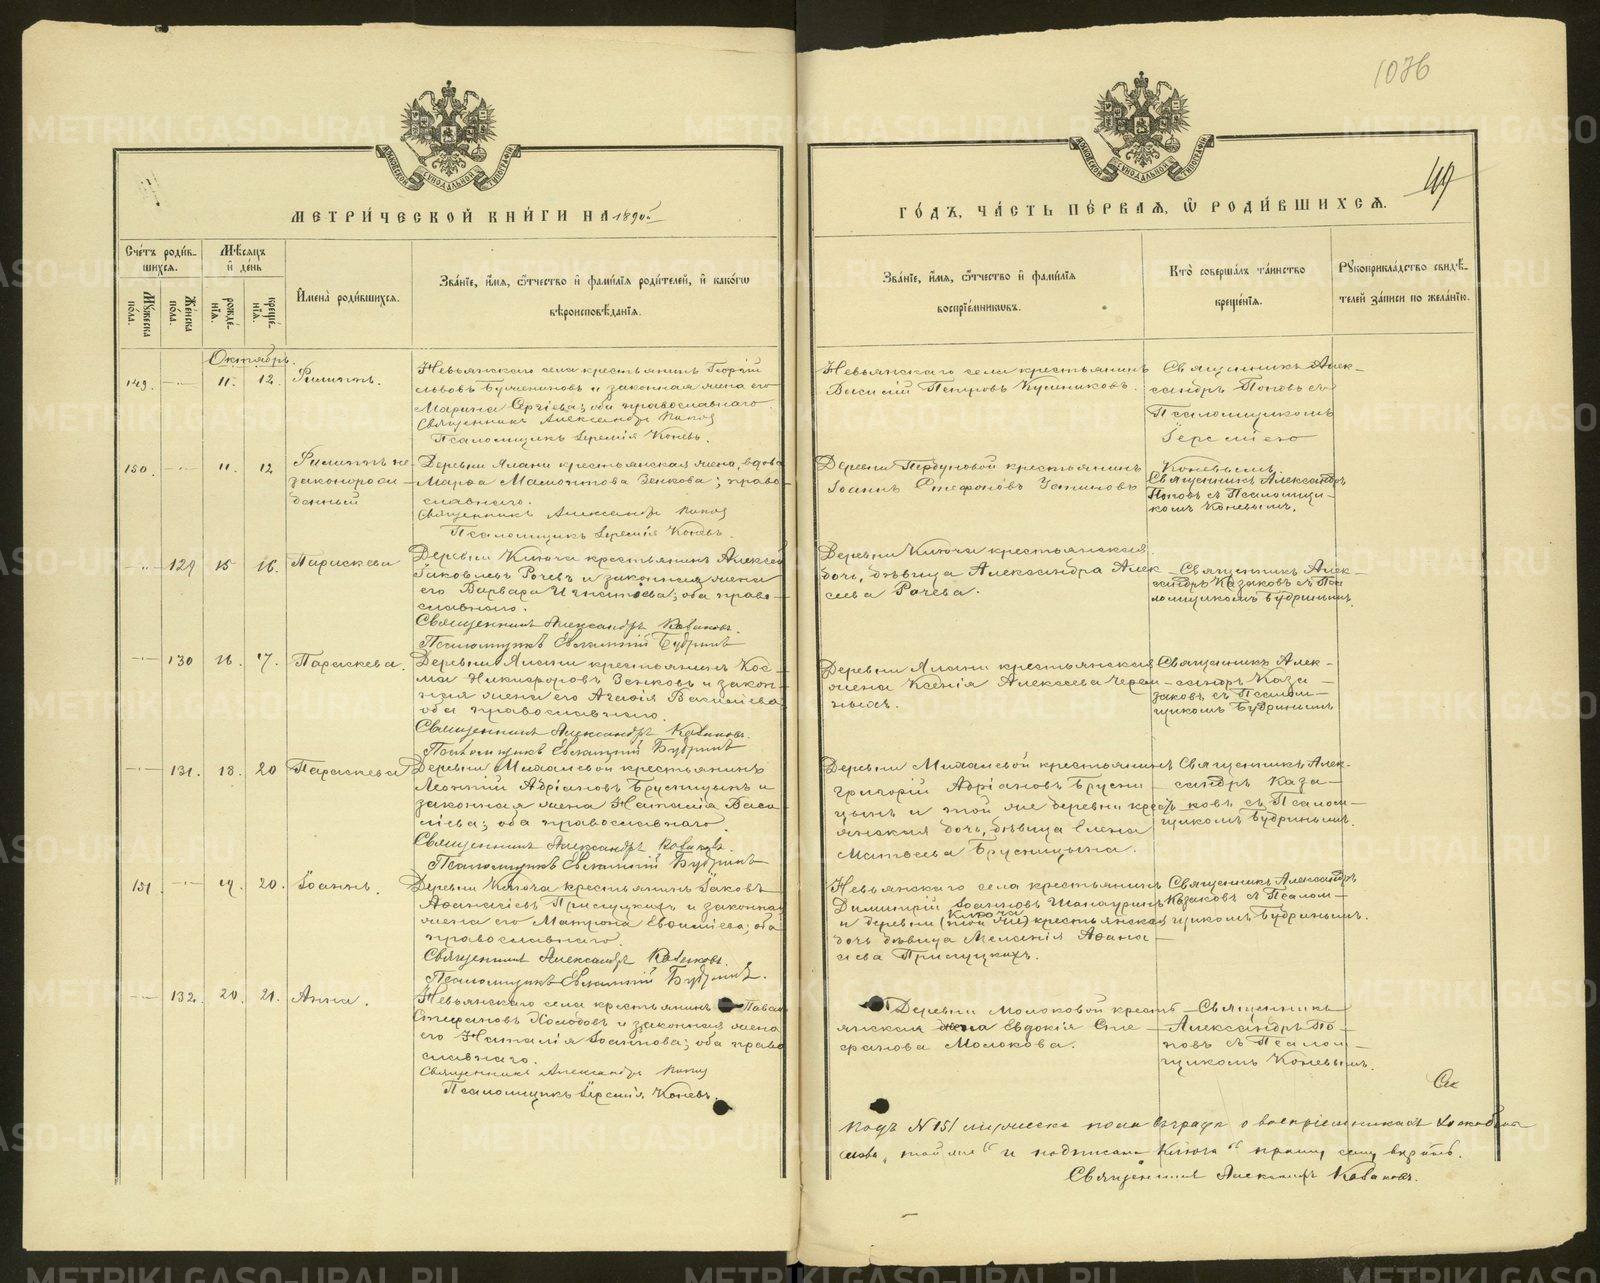 1076
49
МЕТРИ́ЧЕСКОЙ КНИ́ГИ НА 1890й
ГО́ДЪ, ЧА́СТЬ ПЕ́РВАЯ, Ѡ РОДИ́ВШИХСЯ.
Сче́тъ роди́вшихся.
Му́жеска по́ла.
Же́нска по́ла.
Мѣ́сяцъ и де́нь
рожде́нія.
креще́нія.
Имена̀ роди́вшихся.
Зва́ніе, и́мя, ѻ́тчество и фами́лія роди́телей, и како́гѡ
вѣроисповѣ́данія.
Зва́ніе, и́мя, ѻ́тчество и фами́лія
воспріе́мниковъ.
Кто̀ соверша́лъ та́инство
креще́нія.
Рукоприкла́дство свидѣ́-
телей за́писи по жела́нію.
Октябрь.
149. 11. 12. Филиппъ.
Невьянскаго села крестьянинъ Георгій
Львовъ и законная жена его
Марина Сергіева; оба православнаго.
Священникъ Александръ Попов
Псаломщикъ Іеремія Коневъ.
Невьянскаго села крестьянинъ
Василій Петровъ
Священникъ Алек-
сандръ Поповъ съ
Псаломщикомъ
Іереміею
Коневымъ
150. 11. 12 Филиппъ не-
законорож-
денный
Деревни Ялани крестьянская жена, вдова
Марѳа Мамонтова Зенкова; право-
славнаго.
Священникъ Александръ Попов
Псаломщикъ Іеремія Коневъ.
Деревни крестьянинъ
Іоаннъ Стефановъ Устиновъ
Священникъ Александръ
Поповъ съ Псаломщи-
комъ Коневымъ.
129 15 16. Параскева
Деревни Ключа крестьянинъ Алексей
Іаковлевъ Рочевъ и законная жена
его Варвара Игнатіева; оба право-
славнаго.
Священникъ Александръ Казаковъ.
Псаломщикъ Евлампій Будринъ
Деревни Ключа крестьянская
дочь, дѣвица Александра Алек-
сіева Рочева.
Священникъ Алек-
сандръ Казаковъ съ Пса-
ломщикомъ Будринымъ.
130 16. 17. Параскева.
Деревни Ялани крестьянинъ Кос-
ма Никифоровъ Зенковъ и закон-
ная жена его Агафія Василіева
оба православнаго.
Священникъ Александръ Казаковъ.
Псаломщикъ Евлампій Будринъ
Деревни Ялани крестьянская
жена Ксенія Алексеева
ныхъ.
Священникъ Алек-
сандръ Каза-
заковъ съ Псалом-
щикомъ Будринымъ
131. 18. 20 Параскева
Деревни крестьянинъ
Леонтій Адріановъ Брусницынъ и
законная жена Наталія Васи-
ліева; оба православнаго
Священникъ Александръ Казаковъ.
Псаломщикъ Евлампій Будринъ
Деревни крестьянинъ
Григорій Адріановъ Брусни-
цынъ и той же деревни крест-
янская дочь, дѣвица Елена
Матвеева Брусницына.
Священникъ Алек-
сандръ Каза-
ковъ съ Псалом-
щикомъ Будринымъ.
151. 19. 20. Іоаннъ.
Деревни Ключа крестьянинъ Іаковъ
Аѳанасіевъ и законная
жена его Матрона Евѳиміева; оба
православнаго.
Священникъ Александръ Казаковъ.
Псаломщикъ Евлампій Будринъ.
Невьянскаго села крестьянинъ
Димитрій Іоанновъ Шанауринъ
Ключа
и деревни (той же) крестьянская
дочь дѣвица Меланія Аѳана-
сіева
Священникъ Александръ
Казаковъ съ Псалом-
щикомъ Будринымъ.
132. 20. 21. Анна.
Невьянскаго села крестьянинъ Павелъ
Стефановъ Холодовъ и законная жена
его Наталія Іоаннова; оба право-
славнаго.
Священникъ Александръ Попов
Псаломщикъ Іеремія Коневъ.
Деревни Молоковой кресть-
янская Евдокія Сте-
фанова Молокова.
Священникъ
Александръ По-
повъ съ Псалом-
щикомъ Коневымъ.
Подъ №151 мужеска пола въ графѣ о воспріемникахъ
слова "той же" и надписан "Ключа"
Священникъ Александръ Казаковъ.